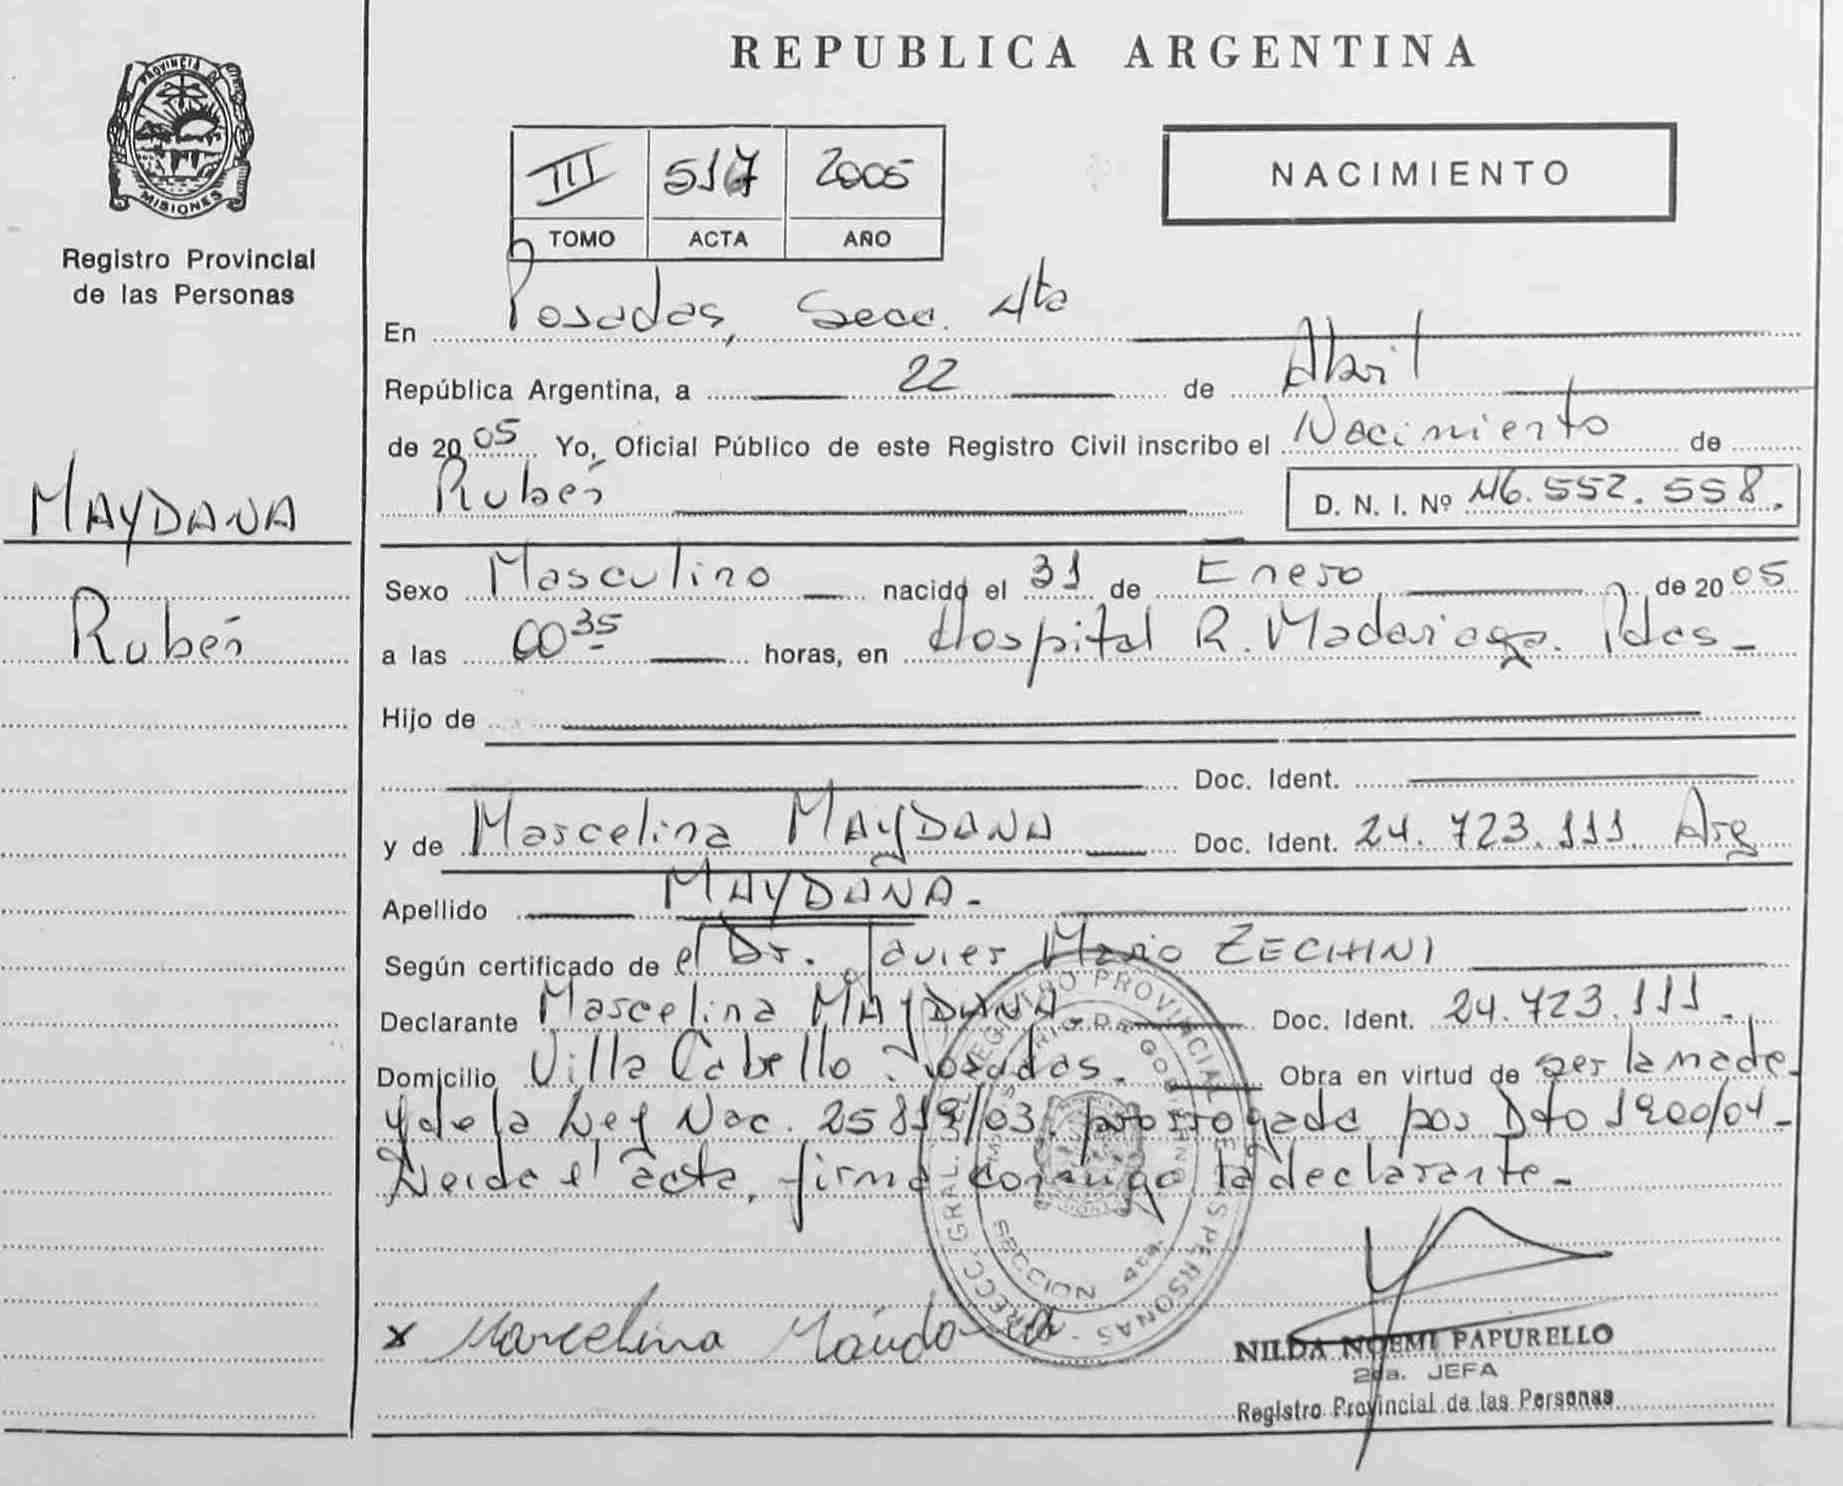 PROVINCIA DE
MISIONES
Registro Provincial
de las Personas
MAYDANA
Rubén
REPUBLICA ARGENTINA
III 517 2005
TOMO ACTA AÑO
NACIMIENTO
En Posadas, Secc. 4ta
República Argentina, a 22 de Abril
de 2005 Yo, Oficial Público de este Registro Civil inscribo el Nacimiento de
Rubén D. N. I. Nº 46.552.558.
Sexo Masculino nacido el 31 de Enero de 2005
a las 00 35 horas, en Hospital R. Madariaga. Pdas
Hijo de
Doc. Ident.
y de Marcelina MAYDANA Doc. Ident. 24.723.111. Arg
Apellido MAYDANA.
Según certificado de el Dr. Javier Mario ZECHINI
Declarante Marcelina MAYDANA Doc. Ident. 24.723.111.
Domicilio Villa Cabello Posadas. Obra en virtud de ser la madre
y de la Ley Nac. 25819/03, prorrogada por Dto 1200/04
Leida el acta, firma conmigo la declarante.
REGISTRO PROVINCIAL DE LAS PERSONAS
SECCION 4ta.
x Marcelina Maydana
NILDA NOEMI PAPURELLO
2da. JEFA
Registro Provincial de las Personas